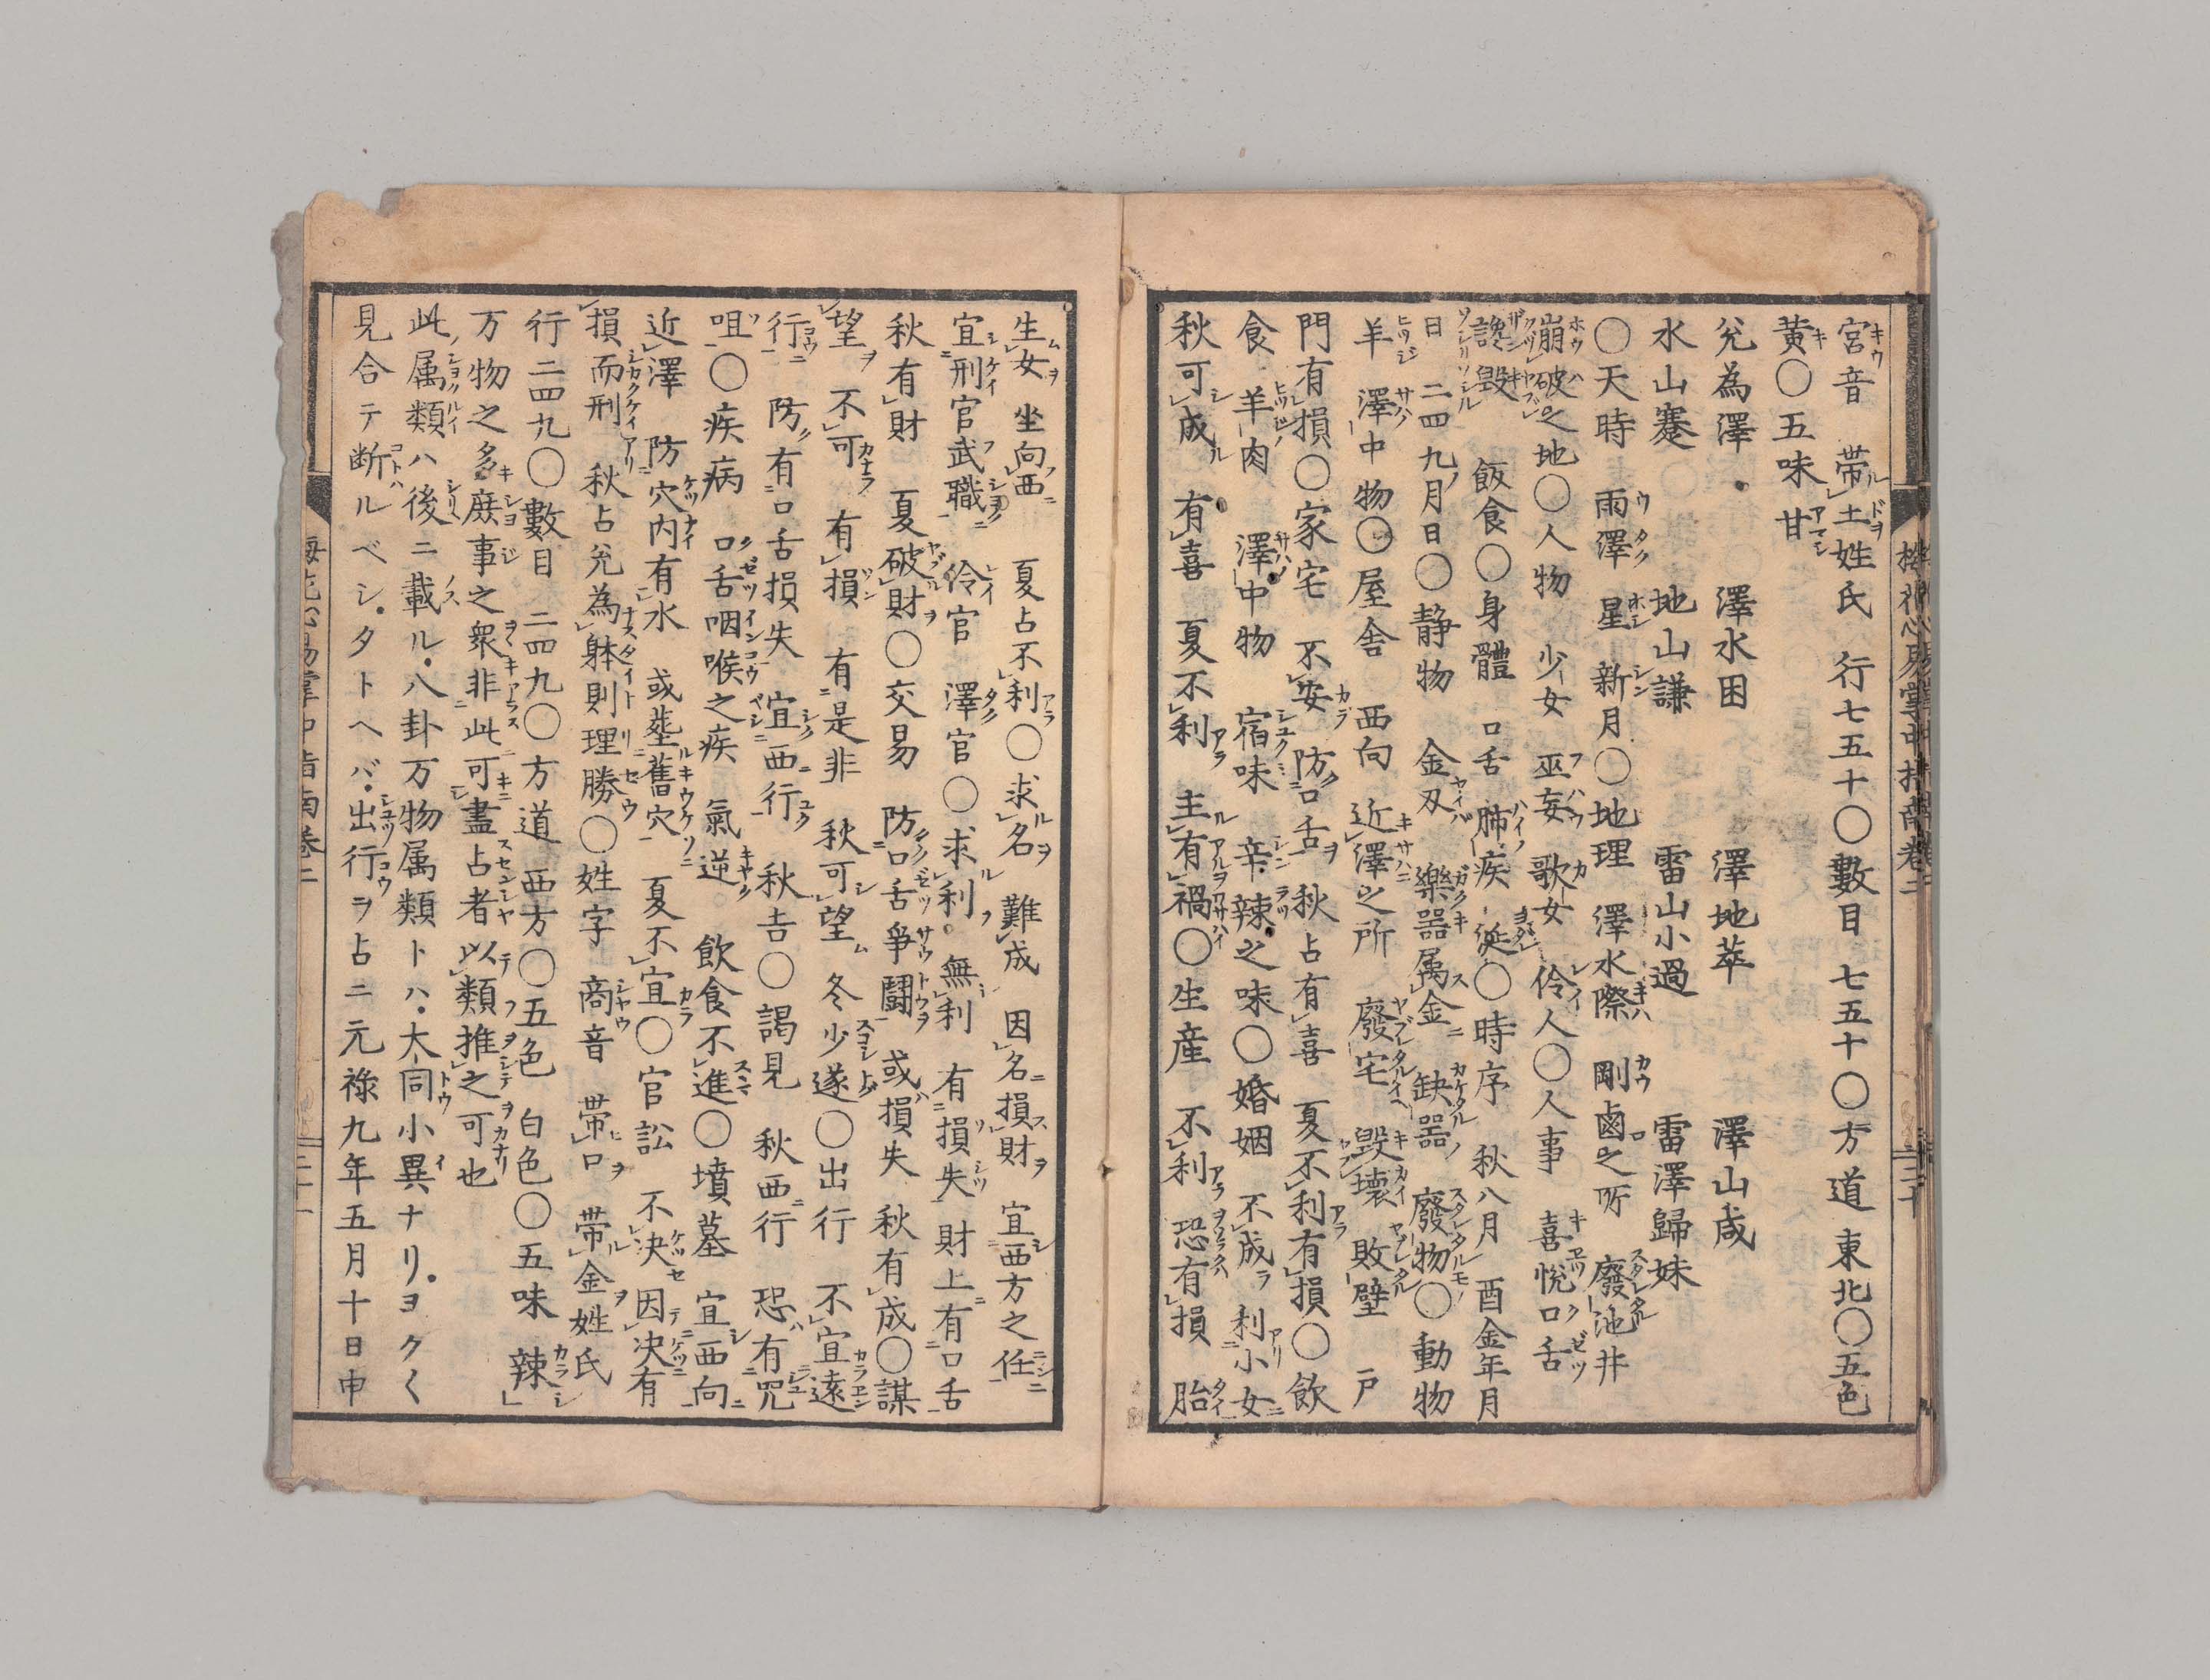 宮音　帯土姓氏　行七五十〇數目　七五十〇方道　東北〇五色
黄〇五味　甘
兊為澤　澤水困　澤地萃　澤山咸
水山蹇　地山謙　雷山小過　雷澤歸妹
〇天時　雨澤　星　新月〇地理　澤水際　剛鹵之所　廢池井
崩破之地〇人物　少女　巫妾　歌女　伶人〇人事　喜悦口舌
讒毀　飯食〇身體　口舌　肺疾　涎〇時序　秋八月　酉金年月
日　二四九月日〇静物　金刄　樂器属金　缺器　廢物〇動物
羊　澤中物〇屋舎　西向　近澤之所　廢宅　毀壊　敗壁　戸
門有損〇家宅　不安　防口舌　秋占有喜　夏不利有損〇飲
食　羊肉　澤中物　宿味　辛辣之味〇婚姻　不成　利小女
秋可成　有喜　夏不利　主有禍〇生産　不利　恐有損　胎
生女　坐向西　夏占不利〇求名　難成　因名損財　宜西方之任
宜刑官武職　伶官　澤官〇求利　無利　有損失　財上有口舌
秋有財　夏破財〇交易　防口舌爭闘　或損失　秋有成〇謀
望　不可　有損　有是非　秋可望　冬少遂〇出行　不宜遠
行　防有口舌損失　宜西行　秋吉〇謁見　秋西行　恐有咒
咀〇疾病　口舌咽喉之疾　氣逆　飲食不進〇墳墓　宜西向
近澤　防穴内有水　或塟舊穴　夏不宜〇官訟　不決　因決有
損而刑　秋占兊為躰則理勝〇姓字　商音　帯口　帯金姓氏
行二四九〇數目　二四九〇方道　西方〇五色　白色〇五味　辣」
万物之多庶事之衆非此可盡占者以類推之可也
此属類ハ後ニ載ル八卦万物属類トハ大同小異ナリヨクく
見合テ断ルベシタトヘバ出行ヲ占ニ元祿九年五月十日申